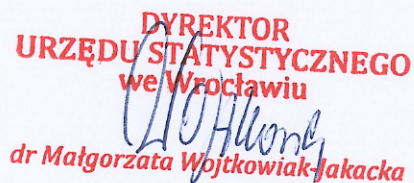 DYREKTOR
URZĘDU STATYSTYCZNEGO
we Wrocławiu
dr Małgorzata Wojtkowiak-Jakacka